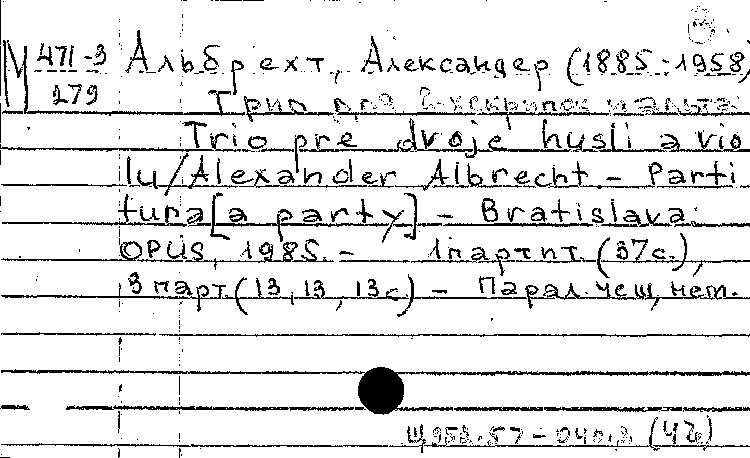 М 471-3
279
Альбрехт, Александер (1885-1958)
Трио для 2-х скрипок и альта
Trio pre dvoje huslí a vio
lu/Alexander Albrecht. - Parti
tura [a party] - Bratislava:
OPUS, 1985. - 1 партит. (37с.),
3 парт. (13, 13, 13с) - Парал. чеш, нем.
Щ953.57-040.3 (4Ч)